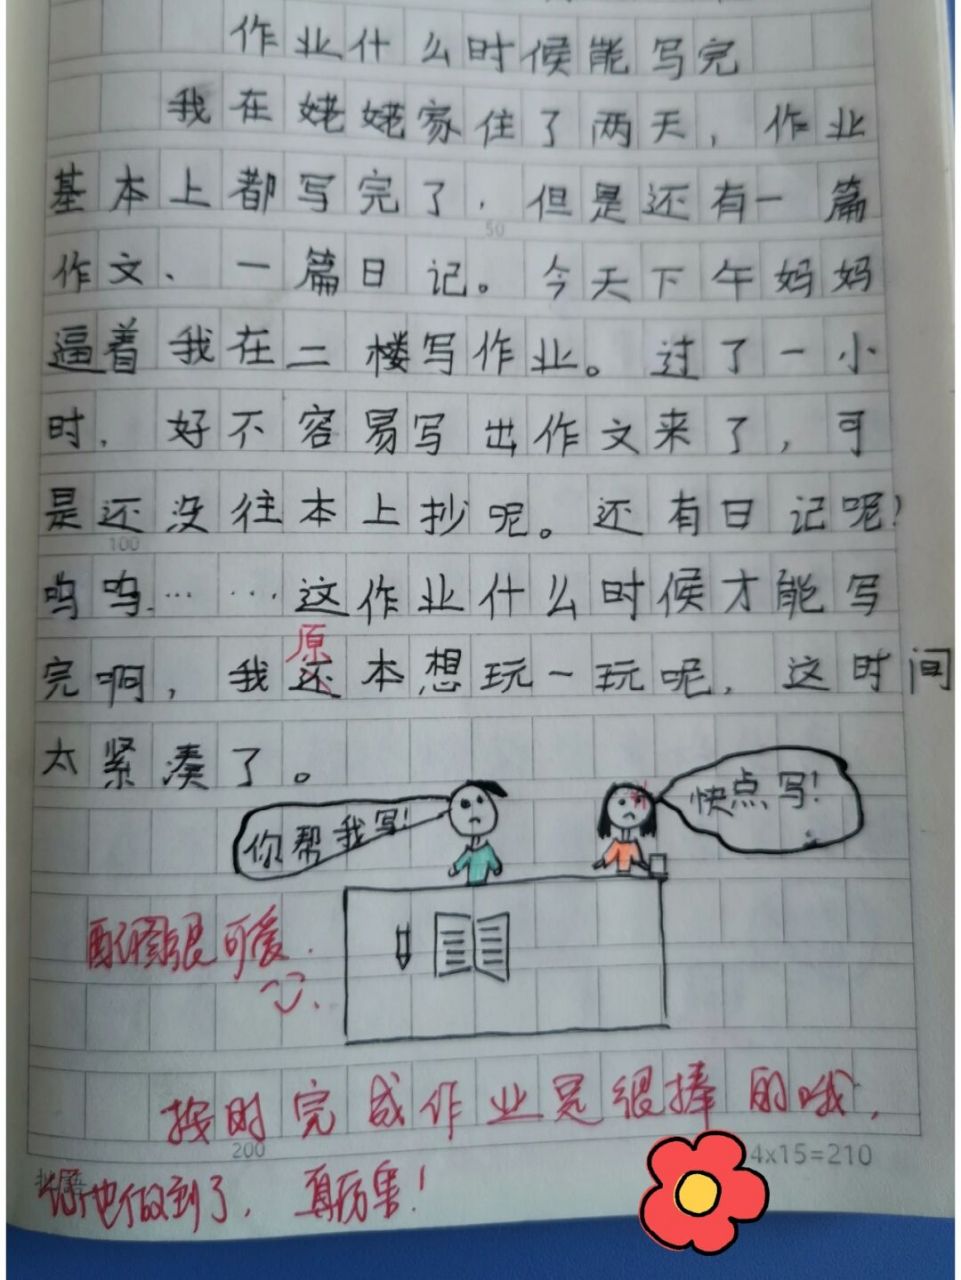 作业什么时候能写完
我在姥姥家住了两天，作业
基本上都写完了，但是还有一篇
作文、一篇日记。今天下午妈妈
逼着我在二楼写作业。过了一小
时，好不容易写出作文来了，可
是还没往本上抄呢。还有日记呢！
50
100
呜呜……这作业什么时候才能写
原
完啊，我还本想玩一玩呢，这时间
太紧凑了。
你帮我写！
快点写！
配图很可爱.
按时完成作业是很棒的哦，
200
4x15=210
你也做到了，真厉害！